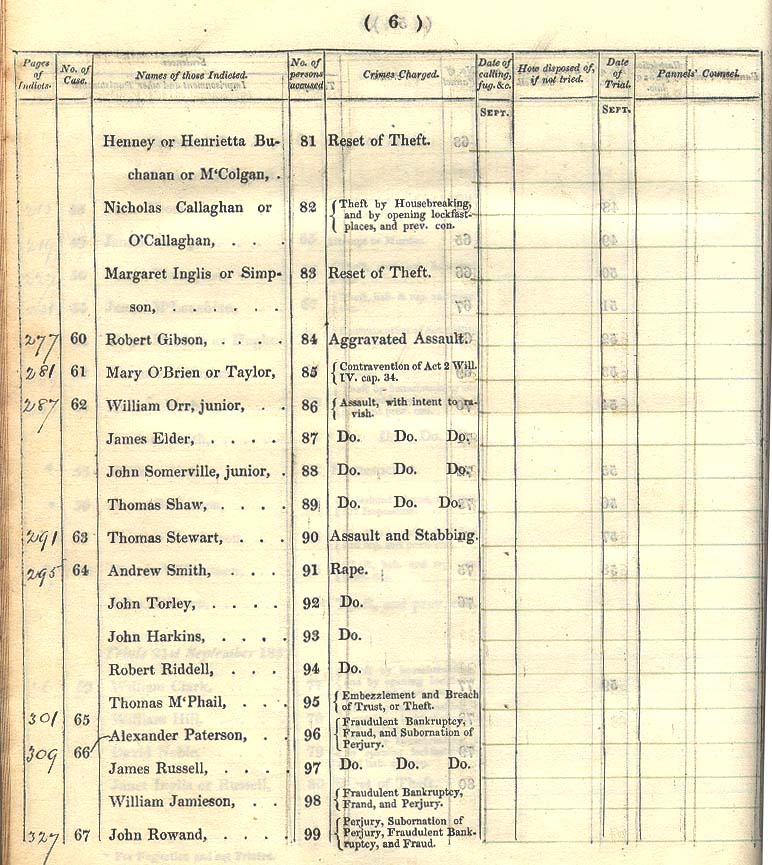 ( 6 )
Pages of Indicts. No. of Case. Names of those Indicted. No. of persons accused Crimes Charged. Date of calling, fug. &c. How disposed of, if not tried. Date of Trial. Pannels' Counsel.
SEPT. SEPT.
Henney or Henrietta Bu- 81 Reset of Theft.
chanan or M'Colgan, .
Nicholas Callaghan or 82 Theft by Housebreaking,
and by opening lockfast-
places, and prev. con.
O'Callaghan, . . .
Margaret Inglis or Simp- 83 Reset of Theft.
son, . . . . . .
277 60 Robert Gibson, . . . . 84 Aggravated Assault.
281 61 Mary O'Brien or Taylor, 85 Contravention of Act 2 Will.
IV. cap. 34.
287 62 William Orr, junior, . . 86 Assault, with intent to ra-
vish.
James Elder, . . . . 87 Do. Do. Do.
John Somerville, junior, . 88 Do. Do. Do.
Thomas Shaw, . . . . 89 Do. Do. Do.
291 63 Thomas Stewart, . . . 90 Assault and Stabbing.
295 64 Andrew Smith, . . . 91 Rape.
John Torley, . . . . 92 Do.
John Harkins, . . . . 93 Do.
Robert Riddell, . . . 94 Do.
301 65 Thomas M'Phail, . . . 95 Embezzlement and Breach
of Trust, or Theft.
309 66 Alexander Paterson, . . 96 Fraudulent Bankruptcy,
Fraud, and Subornation of
Perjury.
James Russell, . . . . 97 Do. Do. Do.
William Jamieson, . . 98 Fraudulent Bankruptcy,
Fraud, and Perjury.
327 67 John Rowand, . . . . 99 Perjury, Subornation of
Perjury, Fraudulent Bank-
ruptcy, and Fraud.